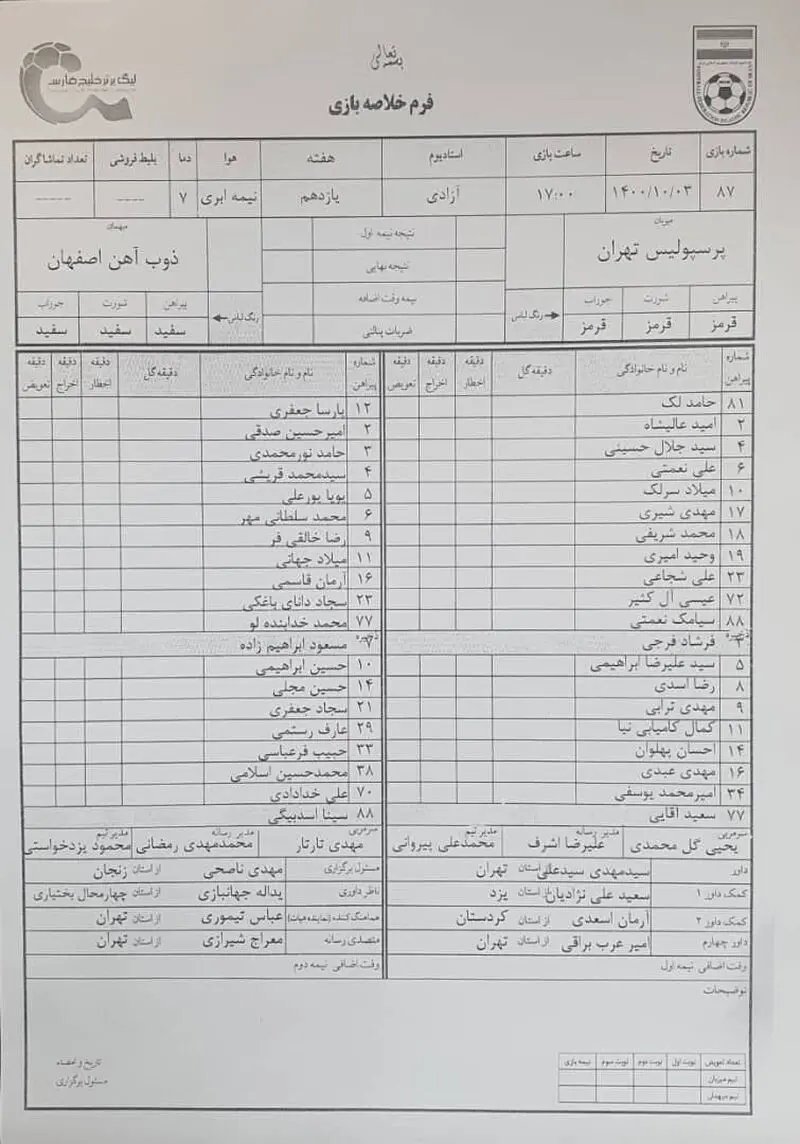 بسمه تعالی
لیگ برتر خلیج فارس
فرم خلاصه بازی
شماره بازی تاریخ ساعت بازی استادیوم هفته هوا دما بلیط فروشی تعداد تماشاگران
۸۷ ۱۴۰۰/۱۰/۰۳ ۱۷:۰۰ آزادی یازدهم نیمه ابری ۷ ---- -----
میزبان
پرسپولیس تهران
پیراهن شورت جوراب
قرمز قرمز قرمز
رنگ لباس
نتیجه نیمه اول
نتیجه نهایی
نیمه وقت اضافه
ضربات پنالتی
میهمان
ذوب آهن اصفهان
پیراهن شورت جوراب
سفید سفید سفید
رنگ لباس
شماره پیراهن نام و نام خانوادگی دقیقه گل دقیقه اخطار دقیقه اخراج دقیقه تعویض
۸۱ حامد لک
۲ امید عالیشاه
۴ سید جلال حسینی
۶ علی نعمتی
۱۰ میلاد سرلک
۱۷ مهدی شیری
۱۸ محمد شریفی
۱۹ وحید امیری
۲۳ علی شجاعی
۷۲ عیسی آل کثیر
۸۸ سیامک نعمتی
ذخیره
۳ فرشاد فرجی
۵ سید علیرضا ابراهیمی
۸ رضا اسدی
۹ مهدی ترابی
۱۱ کمال کامیابی نیا
۱۴ احسان پهلوان
۱۶ مهدی عبدی
۳۴ امیرمحمد یوسفی
۷۷ سعید آقایی
سرمربی یحیی گل محمدی مدیر رسانه علیرضا اشرف مدیر تیم محمدعلی پیروانی
شماره پیراهن نام و نام خانوادگی دقیقه گل دقیقه اخطار دقیقه اخراج دقیقه تعویض
۱۲ پارسا جعفری
۲ امیرحسین صدقی
۳ حامد نورمحمدی
۴ سیدمحمد قریشی
۵ پویا پورعلی
۶ محمد سلطانی مهر
۹ رضا خالقی فر
۱۱ میلاد جهانی
۱۶ آرمان قاسمی
۲۳ سجاد دانای باغکی
۷۷ محمد خدابنده لو
ذخیره
۷ مسعود ابراهیم زاده
۱۰ حسین ابراهیمی
۱۴ حسین مجلی
۲۱ سجاد جعفری
۲۹ عارف رستمی
۳۳ حبیب فرعباسی
۳۸ محمدحسین اسلامی
۷۰ علی خدادادی
۸۸ سینا اسدبیگی
سرمربی مهدی تارتار مدیر رسانه محمدمهدی رمضانی مدیر تیم محمود یزدخواستی
داور سیدمهدی سیدعلی از استان تهران
کمک داور ۱ سعید علی نژادیان از استان یزد
کمک داور ۲ آرمان اسعدی از استان کردستان
داور چهارم امیر عرب براقی از استان تهران
وقت اضافی نیمه اول
مسئول برگزاری مهدی ناصحی از استان زنجان
ناظر داوری یداله جهانبازی از استان چهارمحال بختیاری
هماهنگ کننده (نماینده هیات) عباس تیموری از استان تهران
متصدی رسانه معراج شیرازی از استان تهران
وقت اضافی نیمه دوم
توضیحات
تعداد تعویض نوبت اول نوبت دوم نوبت سوم نیمه بازی
تیم میزبان
تیم میهمان
تاریخ و امضاء
مسئول برگزاری